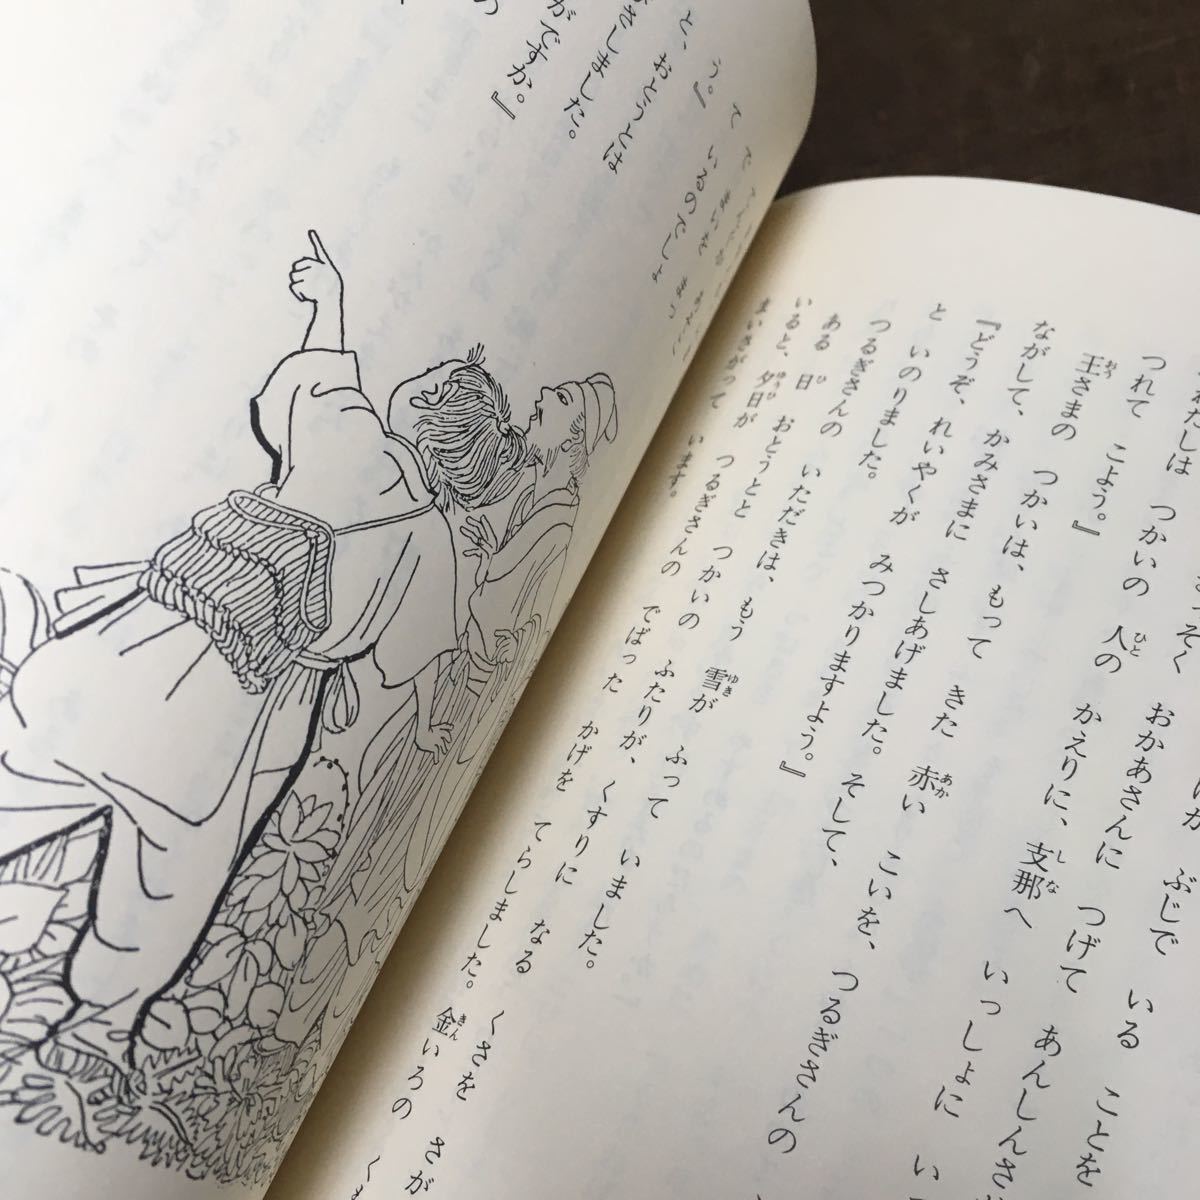 ぶじで いる ことを
そく おかあさんに つげて あんしんさ
わたしは つかいの 人の かえりに、支那へ いっしょに い
つれて こよう。』
王さまの つかいは、もって きた 赤い こいを、つるぎさんの
ながして、かみさまに さしあげました。そして、
『どうぞ、れいやくが みつかりますよう。』
と いのりました。
つるぎさんの いただきは、もう 雪が ふって いました。
ある 日 おとうとと つかいの ふたりが、くすりに なる くさを さが
いると、夕日が つるぎさんの でばった かげを てらしました。金いろの くも
まいさがって います。
て いるのでしょ
う。』
と、おとうとは
さしました。
がですか。』
の